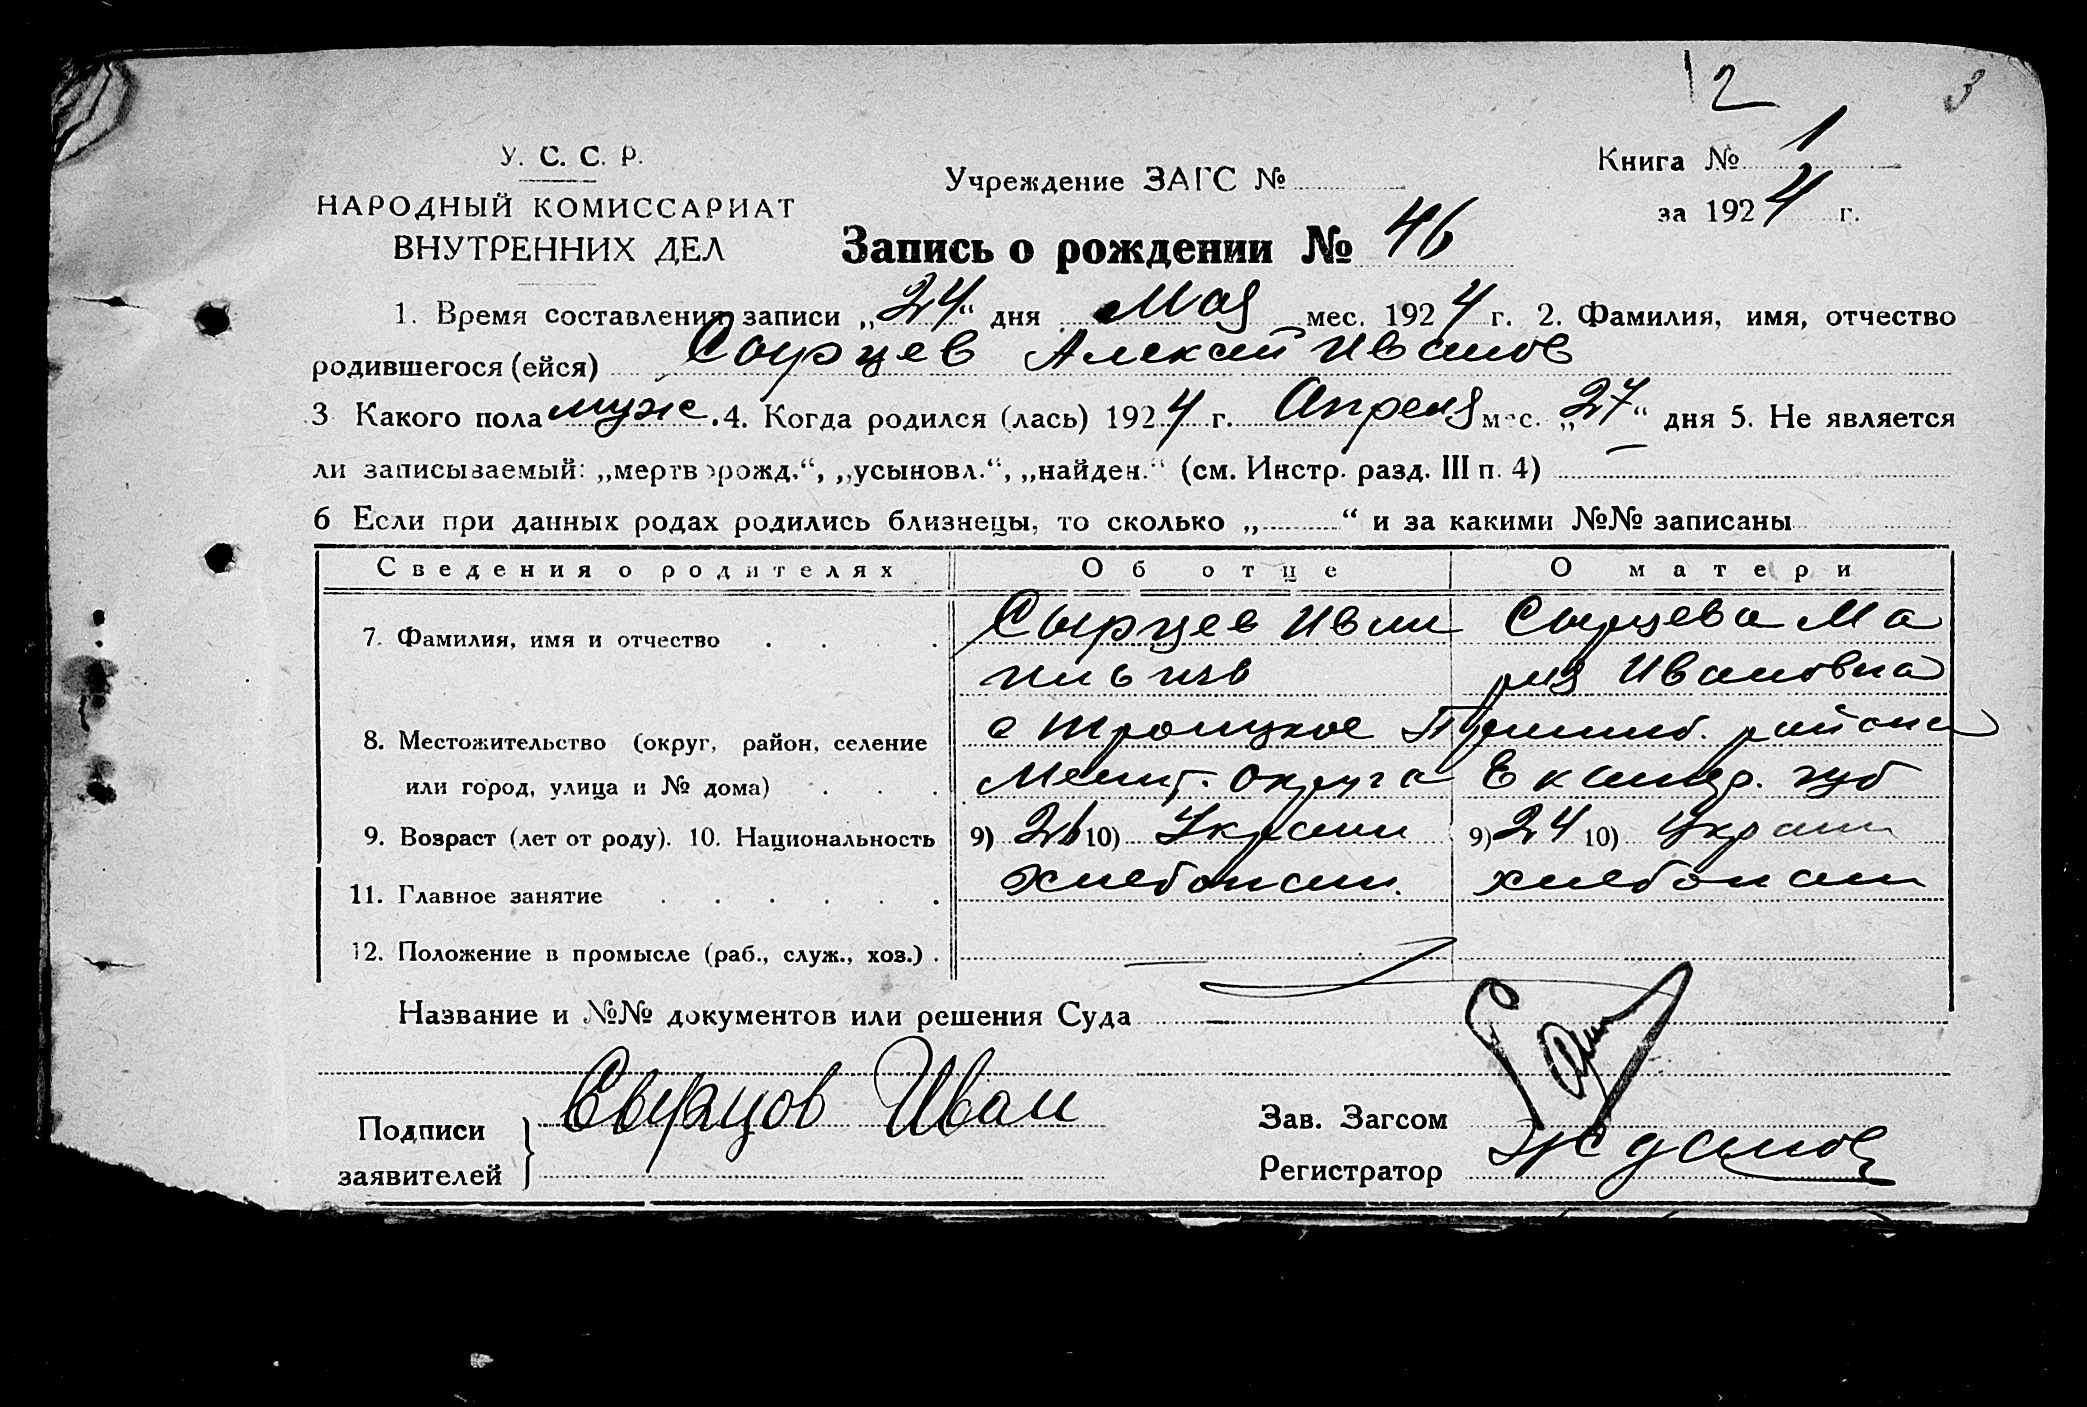 12
3
У. С. С. Р.
НАРОДНЫЙ КОМИССАРИАТ
ВНУТРЕННИХ ДЕЛ
Учреждение ЗАГС №
Книга № 1
за 1924 г.
Запись о рождении № 46
1. Время составления записи „24“ дня Мая мес. 1924 г. 2. Фамилия, имя, отчество
родившегося (ейся) Сырцев Алексей Иванов
3 Какого пола муж. 4. Когда родился (лась) 1924 г. Апреля мес. „27“ дня 5. Не является
ли записываемый: „мертворожд.“, „усыновл.“, „найден.“ (см. Инстр. разд. III п. 4) —
6 Если при данных родах родились близнецы, то сколько „ “ и за какими №№ записаны
Сведения о родителях Об отце О матери
7. Фамилия, имя и отчество Сырцев Иван Сырцева Ма
рия Ивановна
8. Местожительство (округ, район, селение с Троицкое района
или город, улица и № дома) Мелит. округа Екатер. губ
9. Возраст (лет от роду). 10. Национальность 9) 26 10) Украин 9) 24 10) Украин
11. Главное занятие хлебопаш. хлебопаш
12. Положение в промысле (раб., служ., хоз.) —
Название и №№ документов или решения Суда —
Подписи заявителей Сырцов Иван
Зав. Загсом
Регистратор Жданов